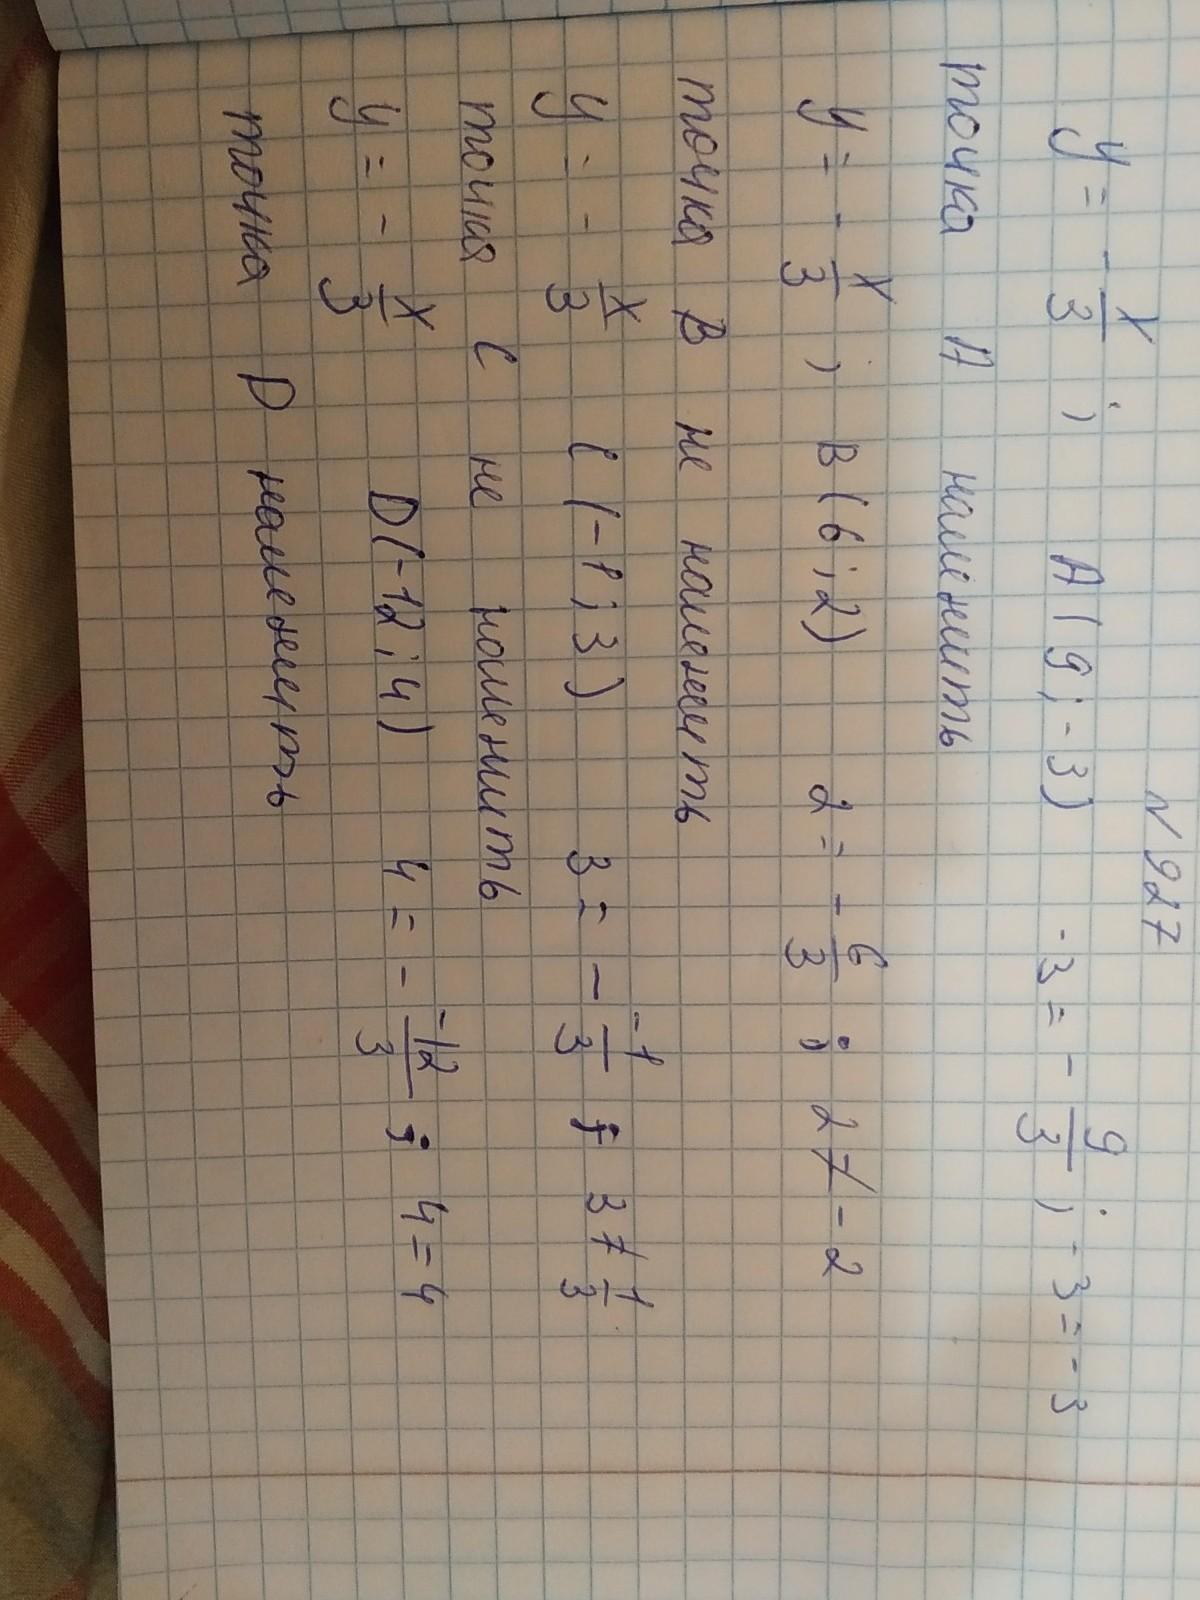 N 927
y = - x/3 ; A ( 9 ; - 3 ) - 3 = - 9/3 ; - 3 = - 3
точка А належить
y = - x/3 ; B ( 6 ; 2 ) 2 = - 6/3 ; 2 ≠ - 2
точка В не належить
y = - x/3 C ( - 1 ; 3 ) 3 = - -1/3 ; 3 ≠ 1/3
точка С не належить
y = - x/3 D ( - 12 ; 4 ) 4 = - -12/3 ; 4 = 4
точка D належить